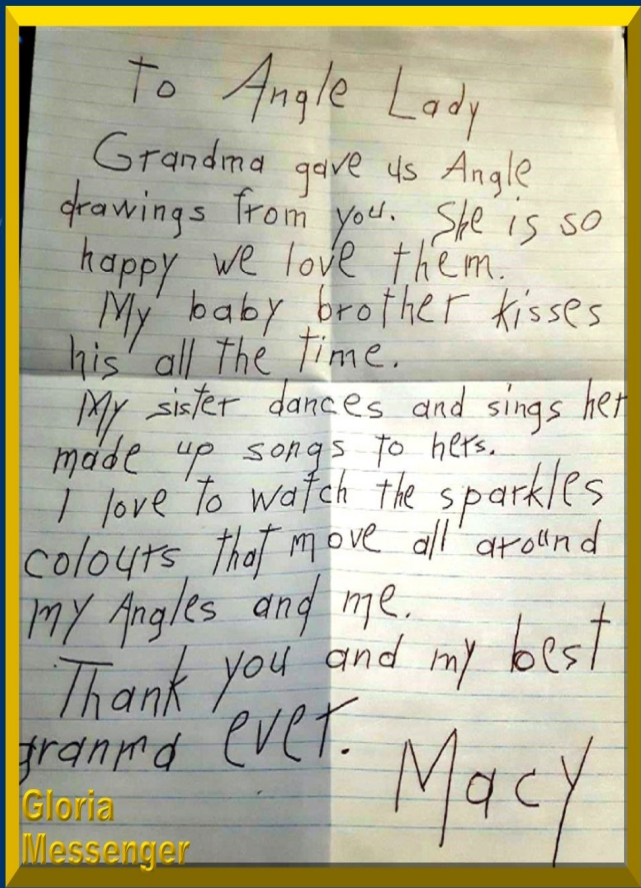 To Angle Lady
Grandma gave us Angle
drawings from you. She is so
happy we love them.
My baby brother kisses
his all the time.
My sister dances and sings her
made up songs to hers.
I love to watch the sparkles
colours that move all around
my Angles and me.
Thank you and my best
granmd ever.
Macy
Gloria
Messenger